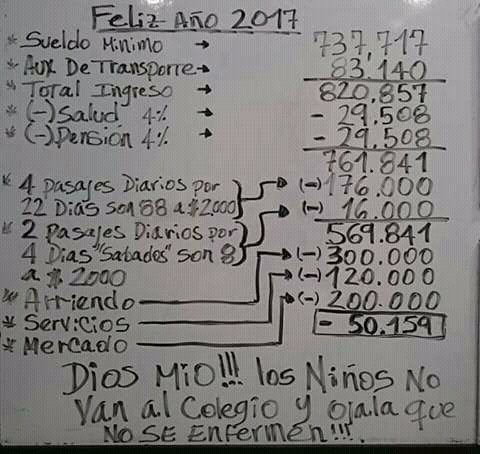 Feliz Año 2017
* Sueldo Minimo → 737,717
* Aux De Transporte → 83.140
* Total Ingreso → 820.857
* (-) Salud 4% → - 29.508
* (-) Pensión 4% → - 29.508
761.841
* 4 Pasajes Diarios por (-) 176.000
22 Dias son 88 a $2000
* 2 Pasajes Diarios por (-) 16.000
4 Dias "Sabados" son 8
a $ 2000
569.841
* Arriendo (-) 300.000
* Servicios (-) 120.000
* Mercado (-) 200.000
- 50.159
Dios Mio!!! los Niños No
Van al Colegio y Ojala que
NO SE Enfermen!!!.